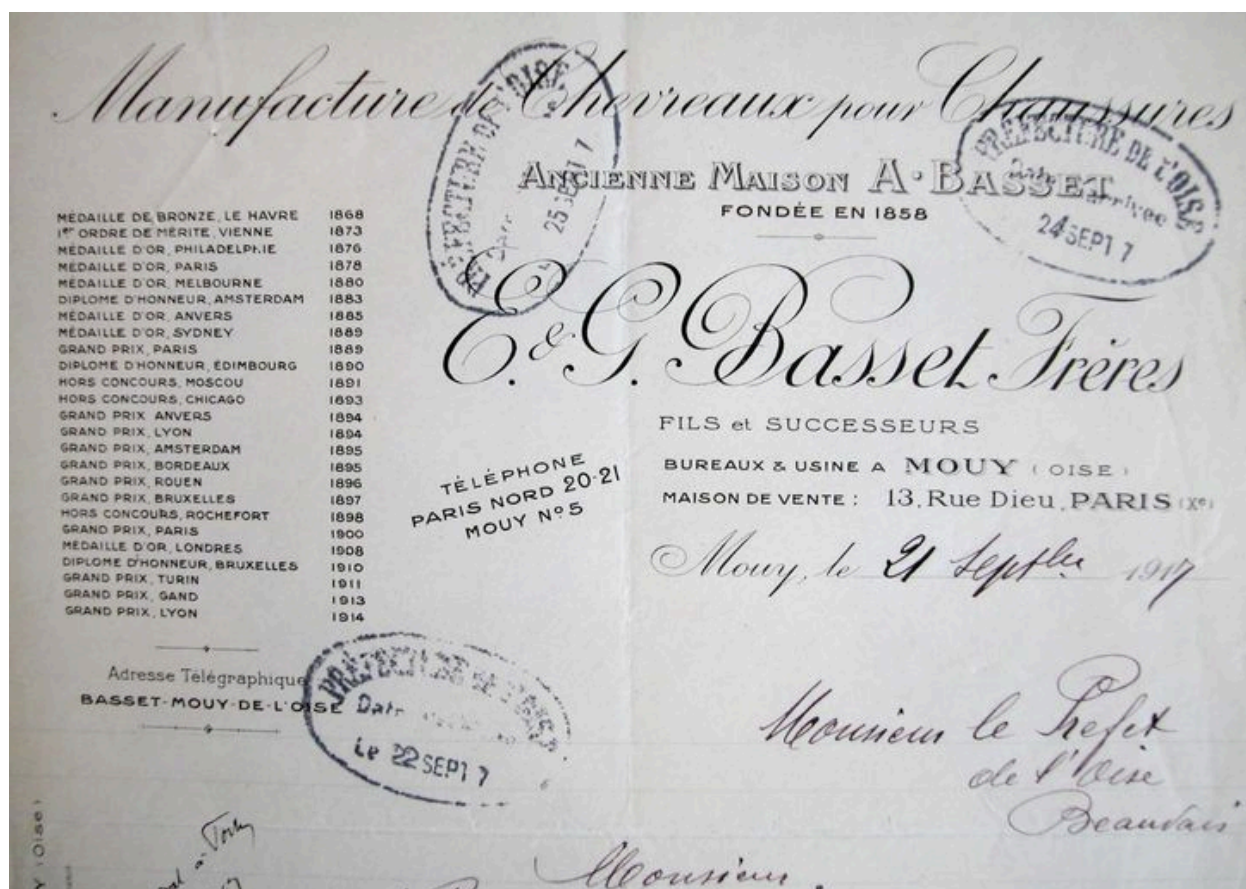 Manufacture de Chevreaux pour Chaussures
ANCIENNE MAISON A. BASSET
FONDÉE EN 1858
E. & G. Basset Frères
FILS et SUCCESSEURS
BUREAUX & USINE A MOUY (OISE)
MAISON DE VENTE : 13, Rue Dieu, PARIS (Xe)
TÉLÉPHONE
PARIS NORD 20-21
MOUY No 5
MÉDAILLE DE BRONZE, LE HAVRE 1868
1er ORDRE DE MÉRITE, VIENNE 1873
MÉDAILLE D'OR, PHILADELPHIE 1876
MÉDAILLE D'OR, PARIS 1878
MÉDAILLE D'OR, MELBOURNE 1880
DIPLOME D'HONNEUR, AMSTERDAM 1883
MÉDAILLE D'OR, ANVERS 1885
MÉDAILLE D'OR, SYDNEY 1889
GRAND PRIX, PARIS 1889
DIPLOME D'HONNEUR, ÉDIMBOURG 1890
HORS CONCOURS, MOSCOU 1891
HORS CONCOURS, CHICAGO 1893
GRAND PRIX ANVERS 1894
GRAND PRIX, LYON 1894
GRAND PRIX, AMSTERDAM 1895
GRAND PRIX, BORDEAUX 1895
GRAND PRIX, ROUEN 1896
GRAND PRIX, BRUXELLES 1897
HORS CONCOURS, ROCHEFORT 1898
GRAND PRIX, PARIS 1900
MÉDAILLE D'OR, LONDRES 1908
DIPLOME D'HONNEUR, BRUXELLES 1910
GRAND PRIX, TURIN 1911
GRAND PRIX, GAND 1913
GRAND PRIX, LYON 1914
Adresse Télégraphique
BASSET-MOUY-DE-L'OISE
PRÉFECTURE DE L'OISE
25 SEPT 7
PRÉFECTURE DE L'OISE
Date arrivée
24 SEPT 7
PRÉFECTURE DE L'OISE
Date
Le 22 SEPT 7
Mouy, le 21 Septbre 1917
Monsieur le Préfet
de l'Oise
Beauvais
Monsieur,
(Oise)